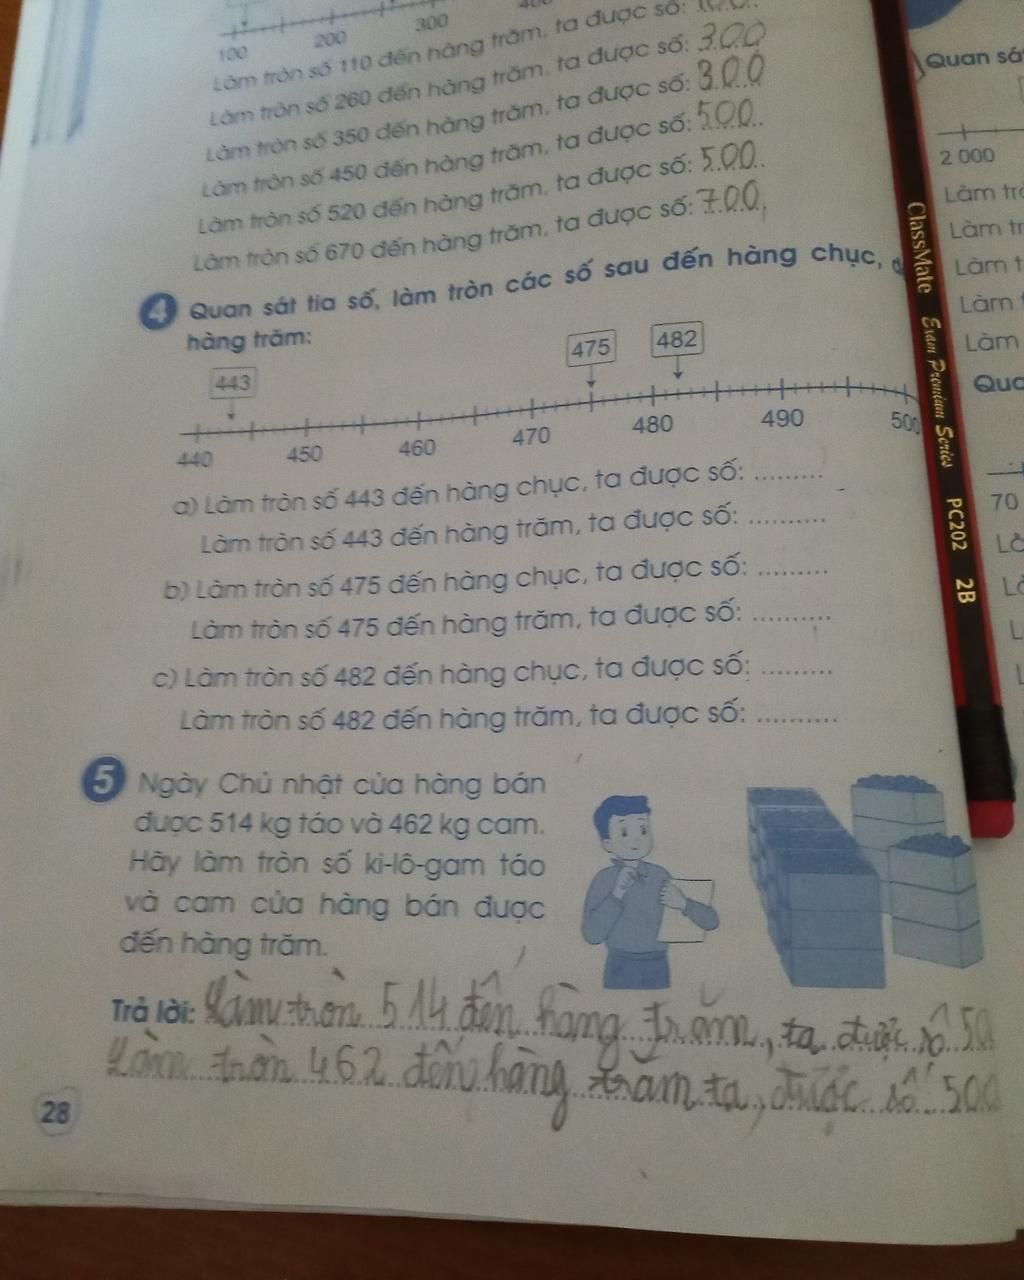 100 200 300 400
Làm tròn số 110 đến hàng trăm, ta được số: 100
Làm tròn số 260 đến hàng trăm, ta được số: 300
Làm tròn số 350 đến hàng trăm, ta được số: 300
Làm tròn số 450 đến hàng trăm, ta được số: 500
Làm tròn số 520 đến hàng trăm, ta được số: 500
Làm tròn số 670 đến hàng trăm, ta được số: 700
4 Quan sát tia số, làm tròn các số sau đến hàng chục,
hàng trăm:
443 475 482
440 450 460 470 480 490 500
a) Làm tròn số 443 đến hàng chục, ta được số: .........
Làm tròn số 443 đến hàng trăm, ta được số: ..........
b) Làm tròn số 475 đến hàng chục, ta được số: .........
Làm tròn số 475 đến hàng trăm, ta được số: ..........
c) Làm tròn số 482 đến hàng chục, ta được số: .........
Làm tròn số 482 đến hàng trăm, ta được số: ..........
5 Ngày Chủ nhật cửa hàng bán
được 514 kg táo và 462 kg cam.
Hãy làm tròn số ki-lô-gam táo
và cam cửa hàng bán được
đến hàng trăm.
Trả lời: Làm tròn 514 đến hàng trăm, ta được số 50
Làm tròn 462 đến hàng trăm ta, được số 500
28
ClassMate Exam Premium Series PC202 2B
Quan sá
2 000
Làm trò
Làm tr
Làm t
Làm
Làm
Qua
70
Là
Là
L
L